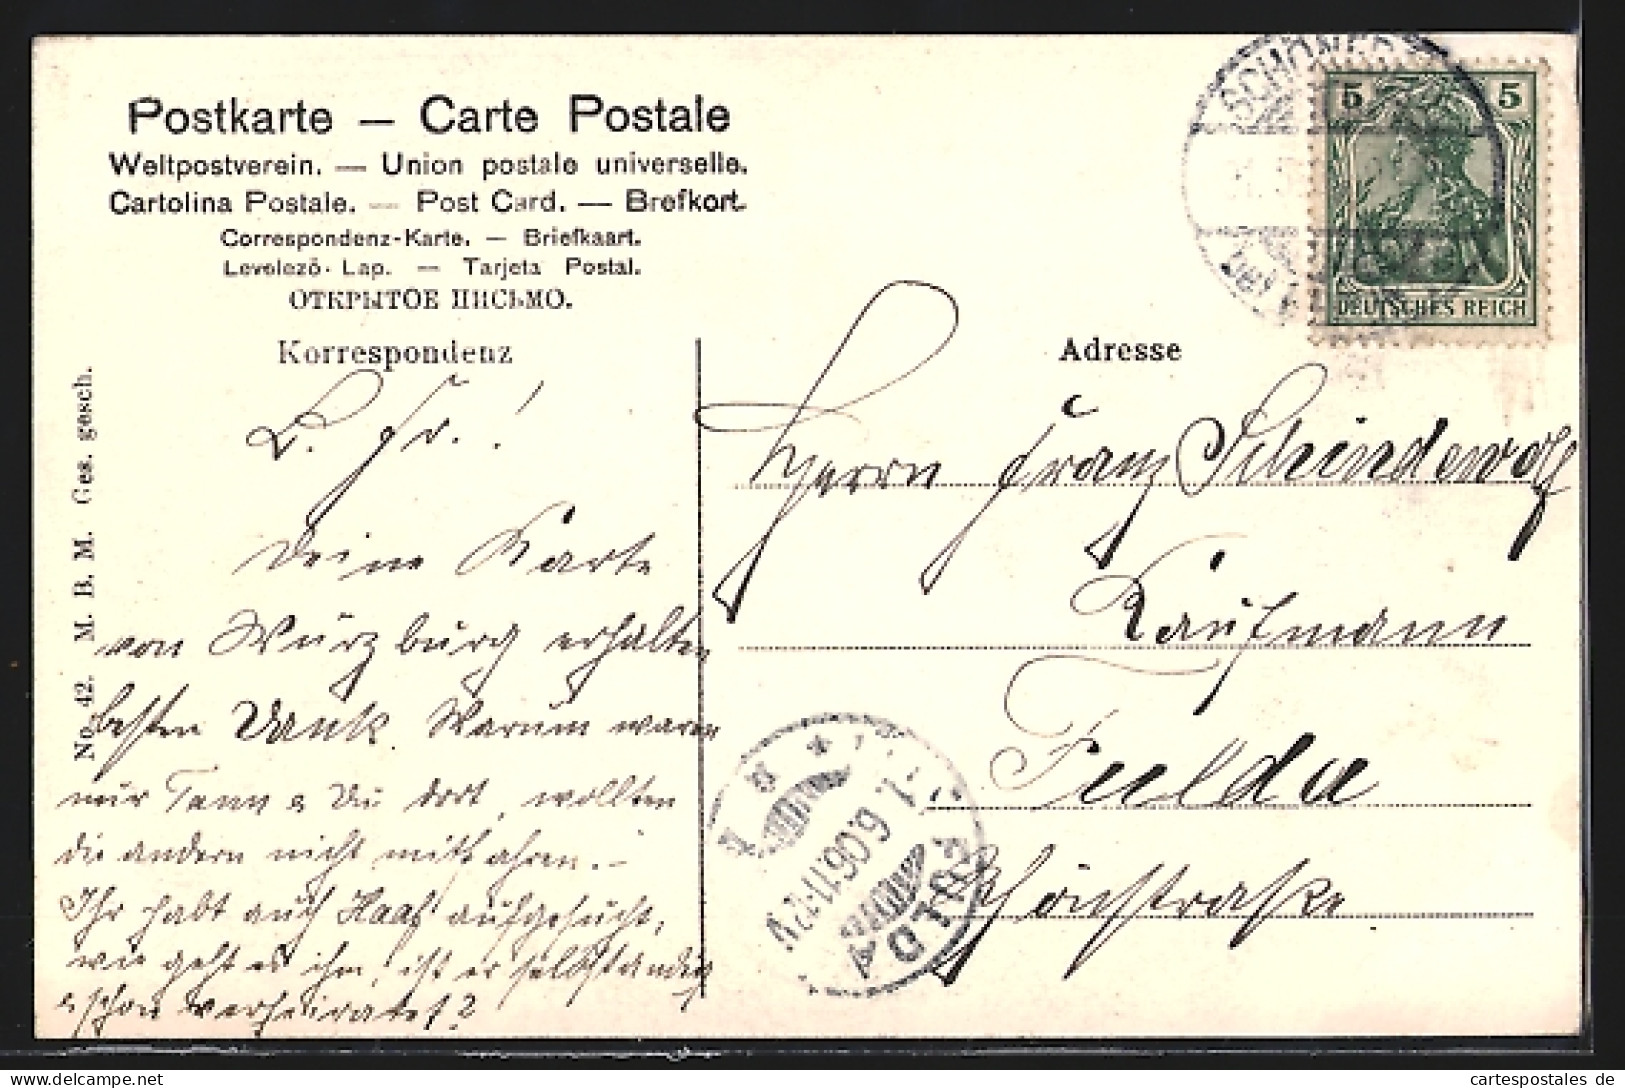 Postkarte — Carte Postale
Weltpostverein. — Union postale universelle.
Cartolina Postale. — Post Card. — Brefkort.
Correspondenz-Karte. — Briefkaart.
Levelező-Lap. — Tarjeta Postal.
ОТКРЫТОЕ ПИСЬМО.
Korrespondenz
No. 42. M. B. M. Ges. gesch.
L. Fr.!
Deine Karte
von Würzburg erhalten
besten Dank. Warum waren
nur Tann & Du dort, wollten
die andern nicht mitfahren. –
Ihr habt auch Haas aufgesucht,
wie geht es ihm, ist er selbständig
& schon verheiratet?
Adresse
Herrn Franz Schindewolf
Kaufmann
Fulda
5 5
DEUTSCHES REICH
SCHÖNEB
bei
FULDA
1. 6.06.11-12V.
cartespostales de